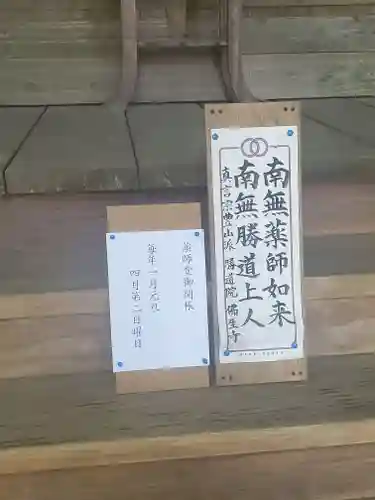 南無薬師如来
南無勝道上人
真言宗豊山派 勝道院 佛生寺
薬師堂御開帳
毎年 一月元旦
四月第二日曜日